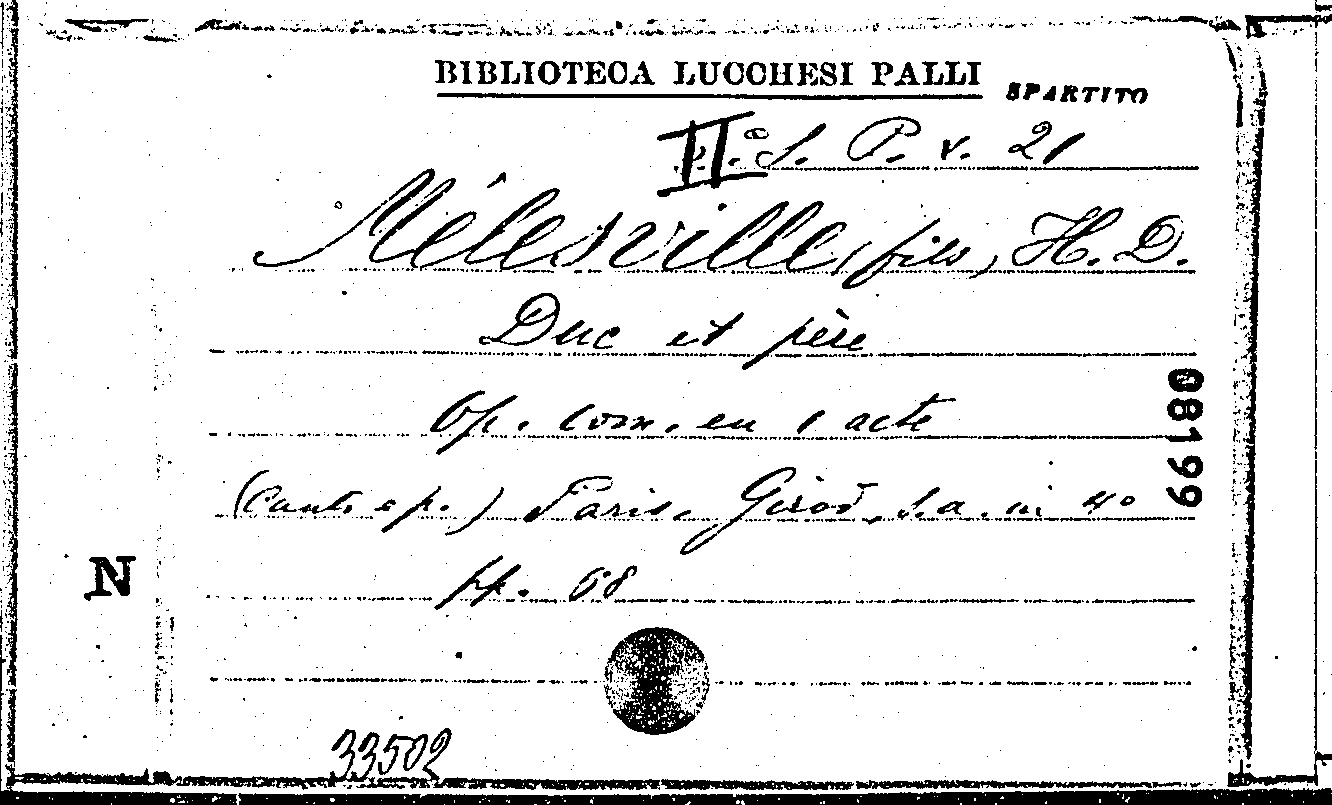 BIBLIOTECA LUCCHESI PALLI
SPARTITO
II.a S. P. v. 21
Mélesville (fils) H. D.
Duc et père
Op. com. en 1 acte
(Canto e p.) Paris, Girod, s.a. in 4º
pp. 68
08199
N
33502